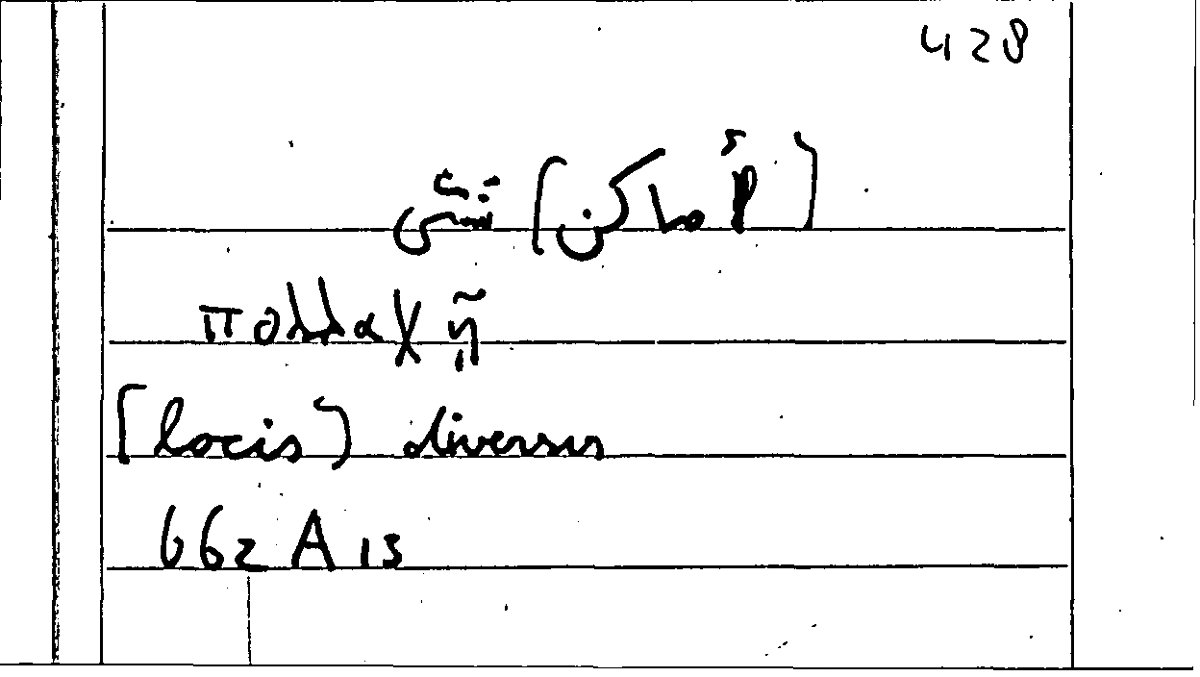 428
[أماكن] شتى
πολλαχῇ
[locis] diversis
662 A 13